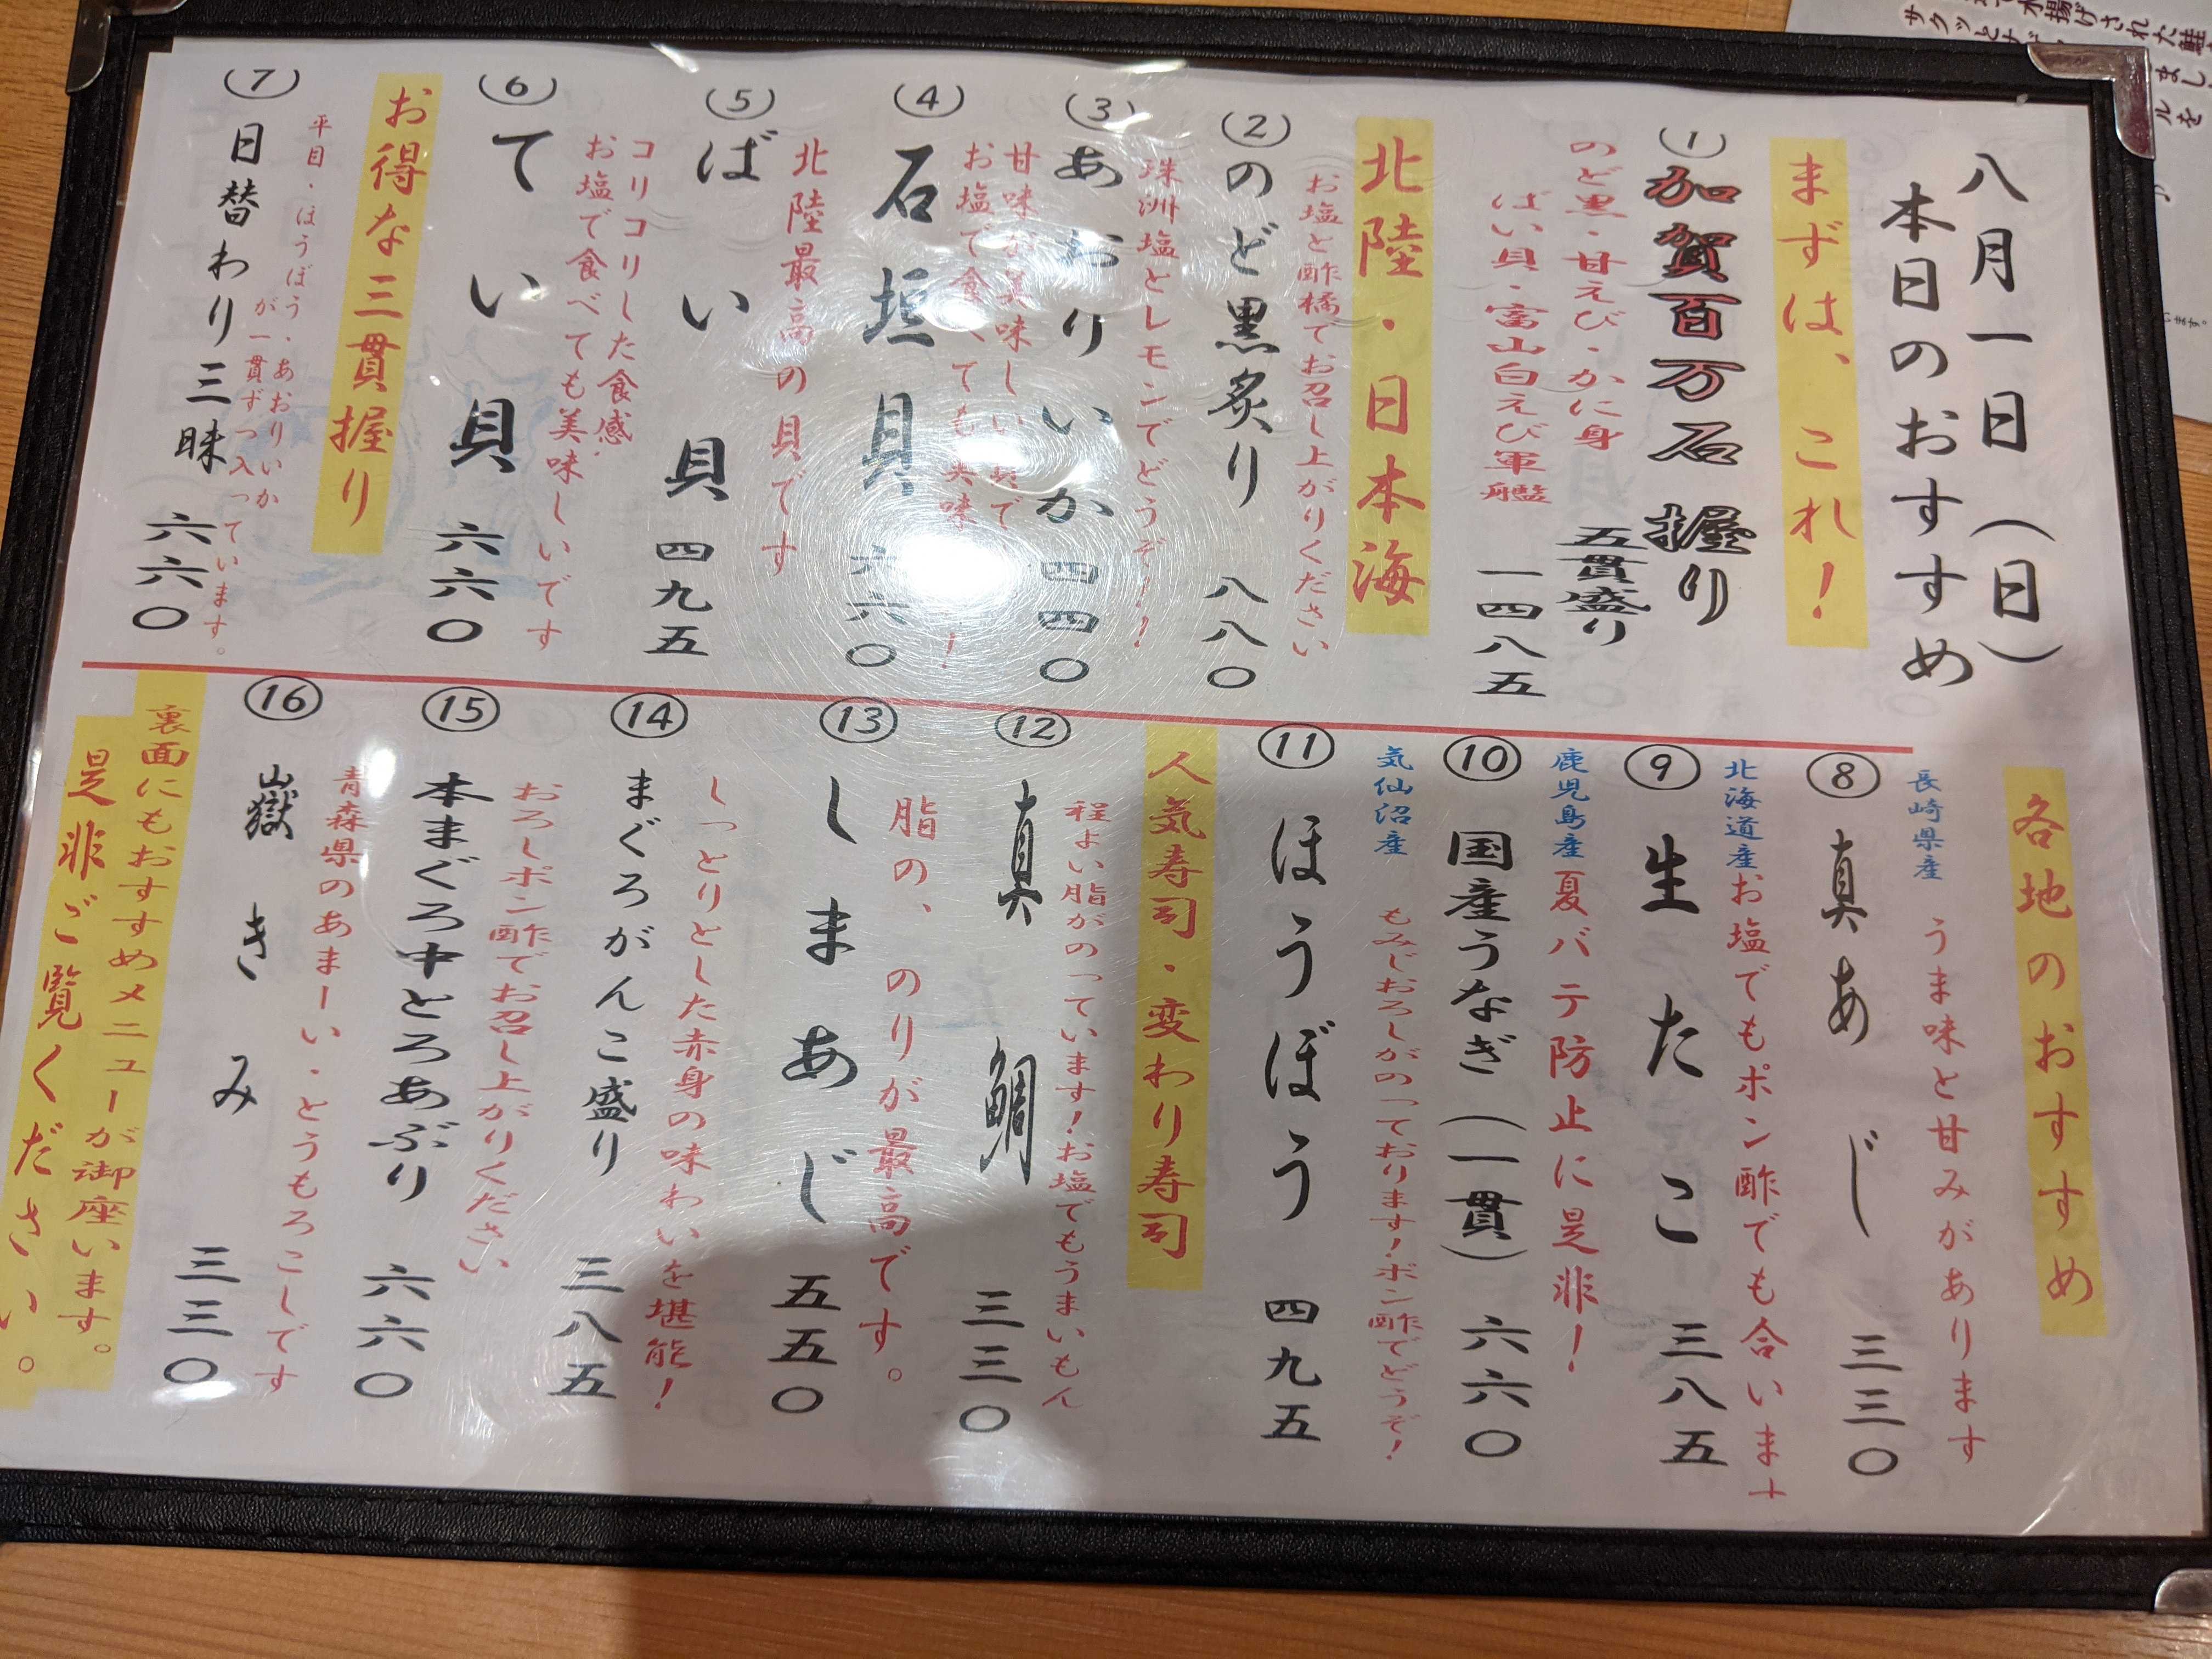 八月一日(日)
本日のおすすめ
まずは、これ!
(1)
加賀百万石握り
五貫盛り
のど黒・甘えび・かに身
ばい貝・富山白えび軍艦
一四八五
北陸・日本海
お塩と酢橘でお召し上がりください
(2)
のど黒炙り 八八〇
珠洲塩とレモンでどうぞ!!
(3)
あおりいか 四四〇
甘味な美味しい貝で
お塩で食べても美味!
(4)
石垣貝 六六〇
北陸最高の貝です
(5)
ばい貝 四九五
コリコリした食感、
お塩で食べても美味しいです
(6)
てい貝 六六〇
お得な三貫握り
平目・ほうぼう・あおりいか
が一貫ずつ入っています。
(7)
日替わり三昧 六六〇
各地のおすすめ
長崎県産 うま味と甘みがあります
⑧
真あじ 三三〇
北海道産お塩でもポン酢でも合います
⑨
生たこ 三八五
鹿児島産夏バテ防止に是非!
⑩
国産うなぎ(一貫) 六六〇
気仙沼産 もみじおろしがのっております!ポン酢でどうぞ!
⑪
ほうぼう 四九五
人気寿司・変わり寿司
程よい脂がのっています!お塩でもうまいもん
⑫
真鯛 三三〇
脂の、のりが最高です。
⑬
しまあじ 五五〇
しっとりとした赤身の味わいを堪能!
⑭
まぐろがんこ盛り 三八五
おろしポン酢でお召し上がりください
⑮
本まぐろ中とろあぶり 六六〇
青森県のあまーい・とうもろこしです
⑯
嶽きみ 三三〇
裏面にもおすすめメニューが御座います。
是非ご覧ください。
水揚げされた鮭
サクッと
まし
ルを
います。